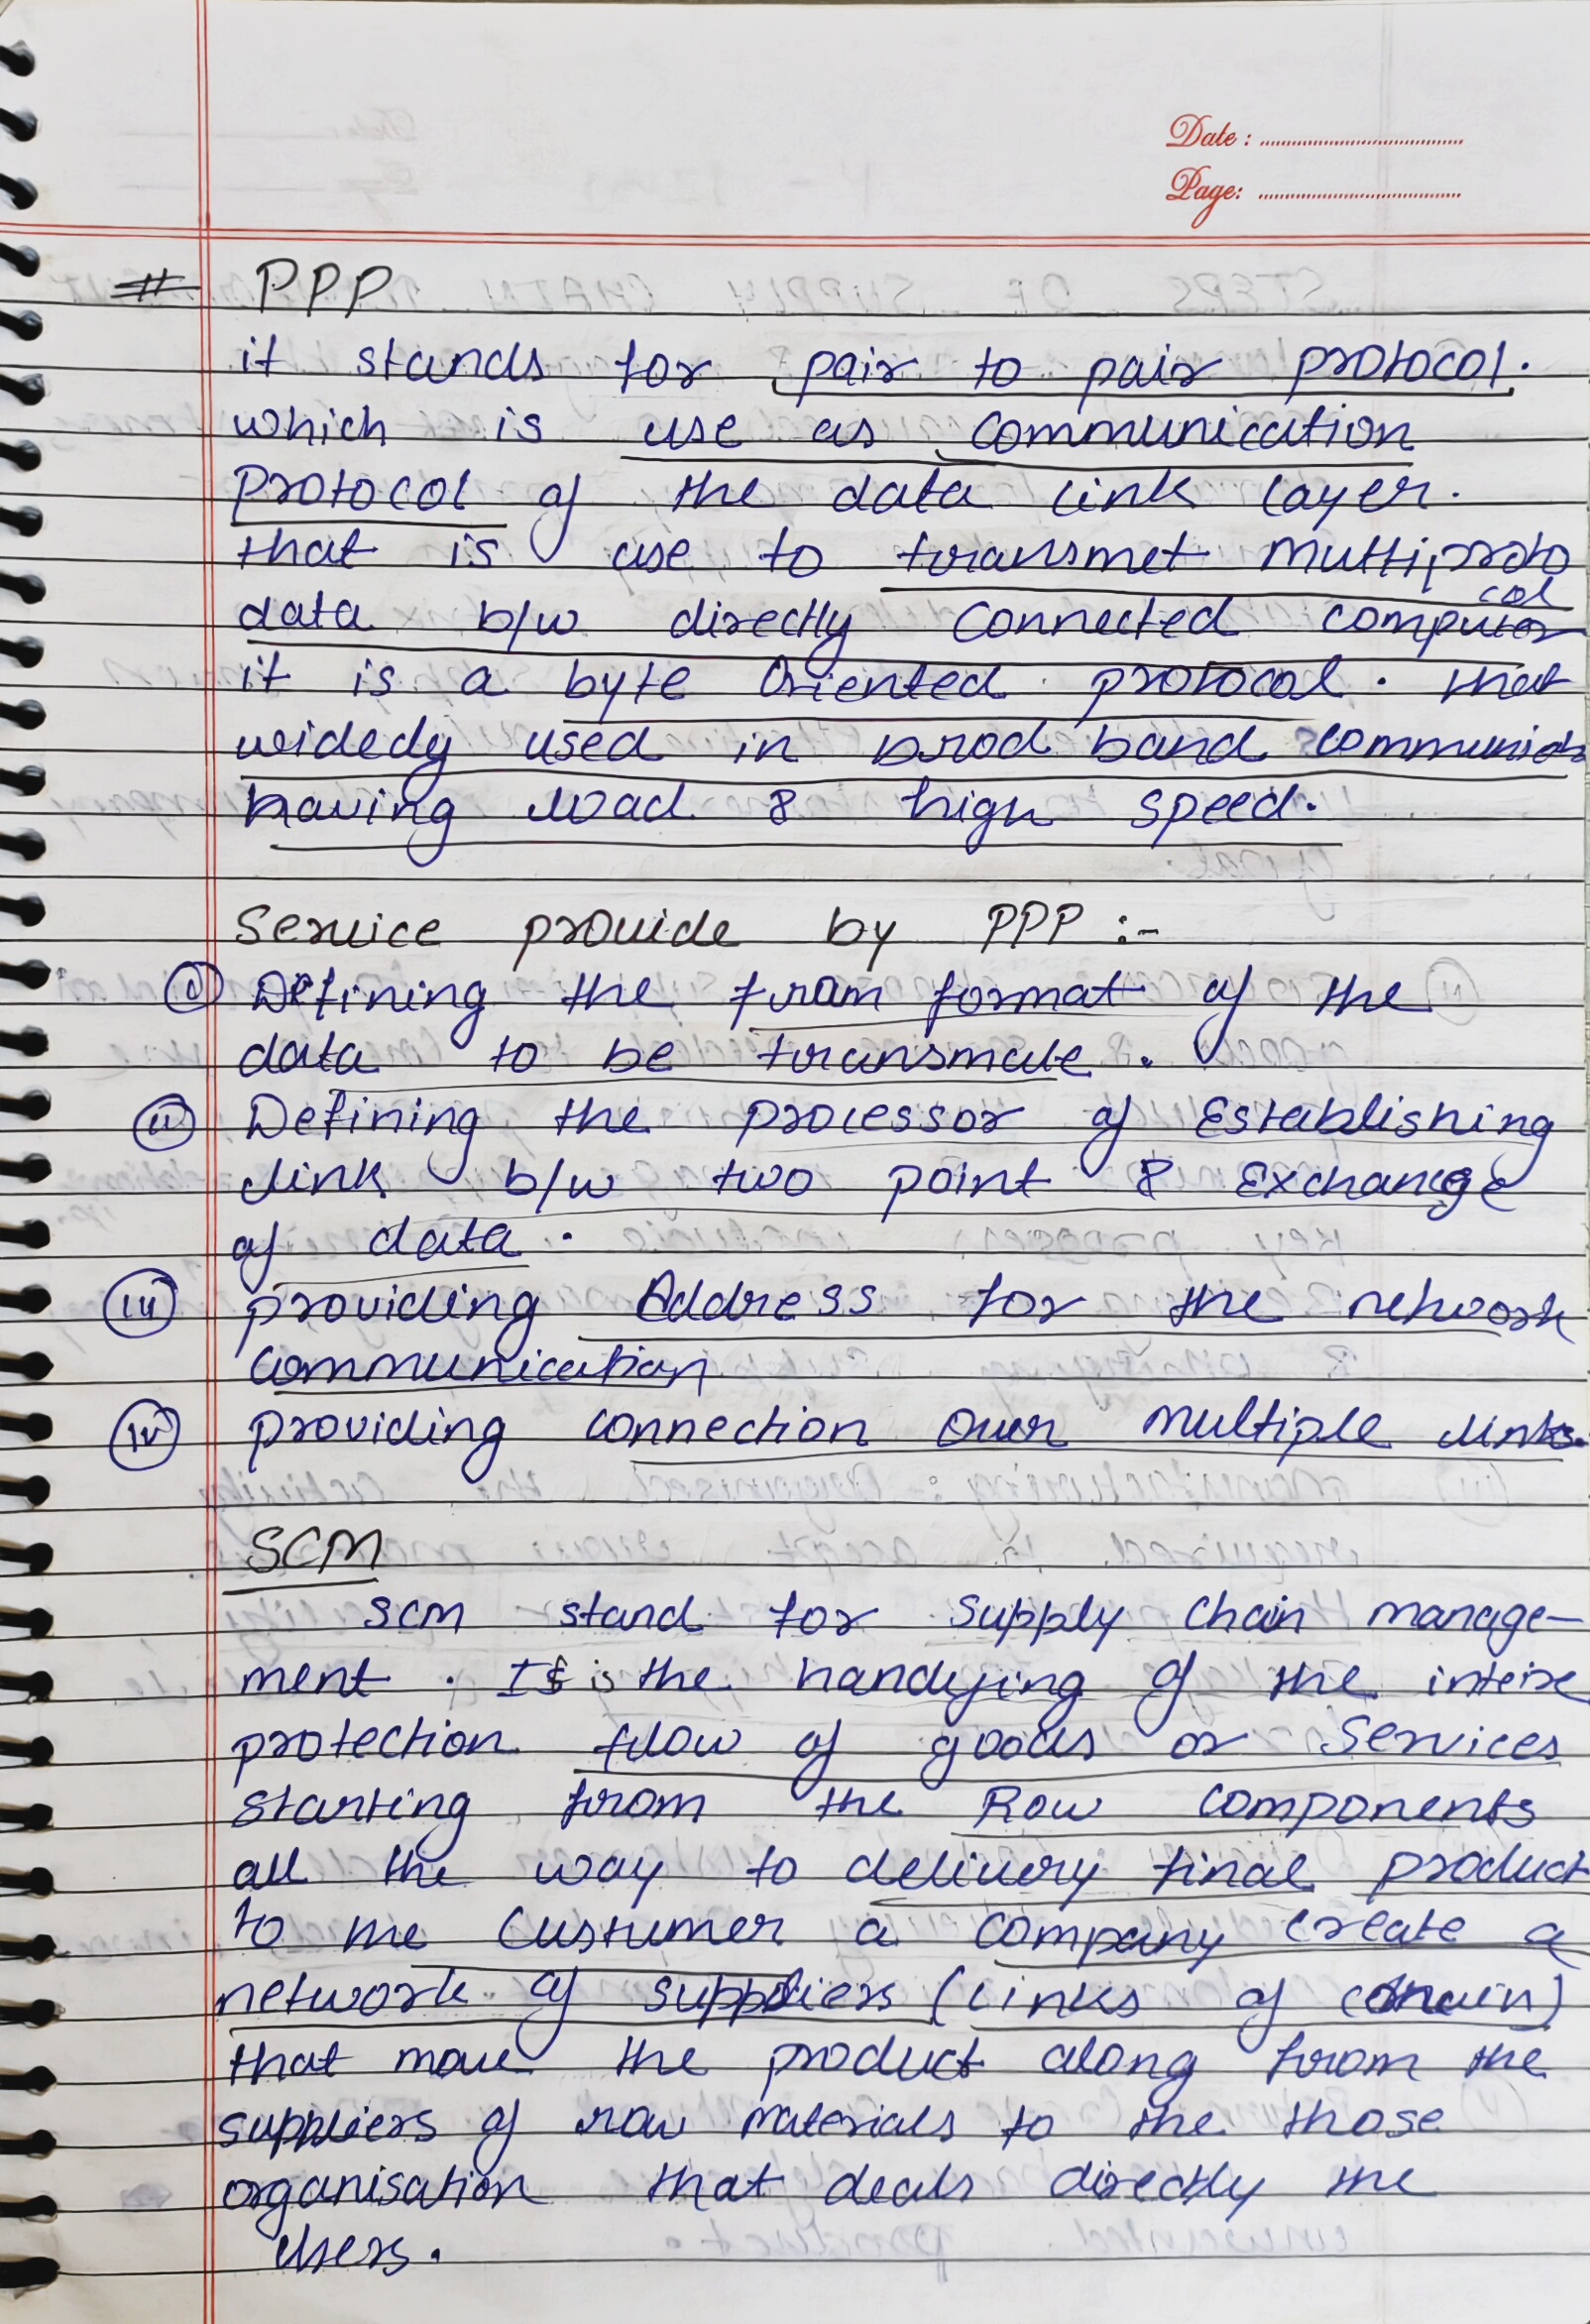 Date :
Page:
# PPP
it stands for pair to pair protocol.
which is use as communication
protocol of the data link layer.
that is use to transmet multiproto
col
data b/w directly connected computer
it is a byte oriented protocol. that
widedy used in brod band
having load & high speed.
Service provide by PPP :-
(i) Defining the fram format of the
data to be transmate.
(ii) Defining the processor of Establishing
link b/w two point & Exchange
of data.
(iii) providing Address for the network
communication
(iv) providing connection over multiple links.
SCM
SCM stand for supply chain manage-
ment. It is the handying of the inteire
protection flow of goods or services
starting from the Row components
all the way to delivery final product
to the custumer a company create a
network of suppliers (links of chain)
that move the product along from the
suppliers of row materials to the those
organisation that deals directly the
Users.